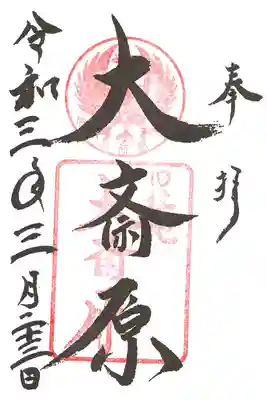 奉拝
大斎原
令和三年三月二十三日